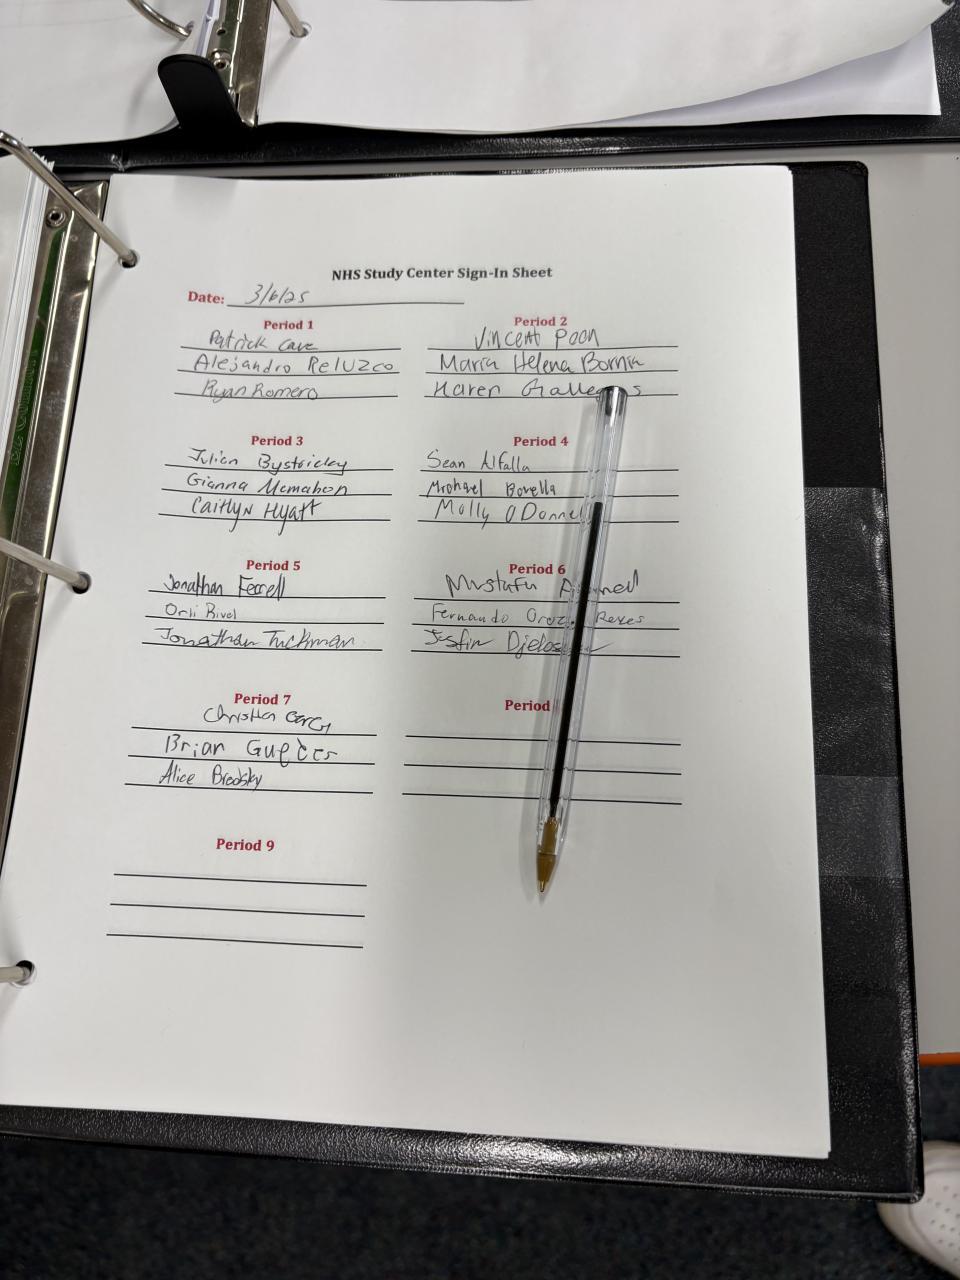 NHS Study Center Sign-In Sheet
Date: 3/6/25
Period 1
Patrick Cave
Alejandro Reluzco
Ryan Romero
Period 2
Vincent Poon
Maria Helena Bornia
Karen
Period 3
Julian Bystricky
Gianna Mcmahon
Caitlyn Hyatt
Period 4
Sean Alfalla
Michael Borella
Molly O Donnel
Period 5
Jonathan Ferrell
Orli Rivel
Jonathan Tuckman
Period 6
Mustafa
Fernando Reyes
Justin
Period 7
Christian
Brian
Alice Brodsky
Period
Period 9